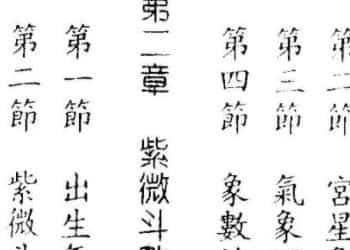 第二節 宮星
第三節 氣象
第四節 象數
第二章 紫微斗數
第一節 出生年
第二節 紫微斗